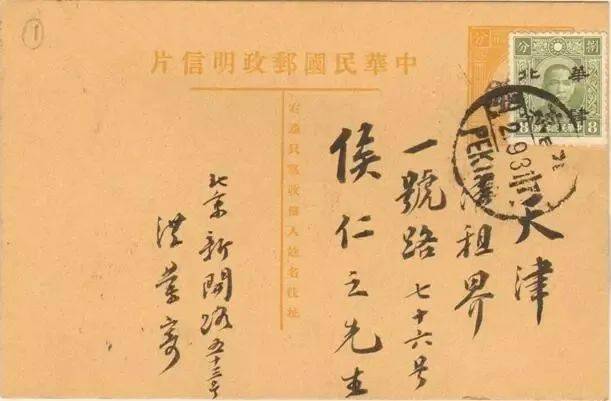 ①
中華民國郵政明信片
分
捌分
華北
肆分
8 8
PEKING
天津
租界
一號路七十六号
侯仁之先生
右邊只寫收信人姓名住址
北京新開路五十三号
洪業寄